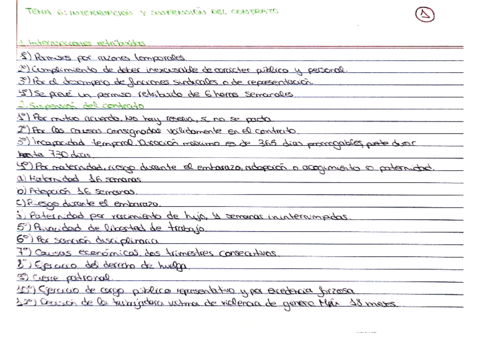 TEMA 6: INTERRUPCIÓN Y SUSPENSIÓN DEL CONTRATO
1. Interrupciones retribuidas
1º) Permisos por razones temporales.
2º) Cumplimiento de deber inexcusable de carácter público y personal.
3º) Por el desempeño de funciones sindicales o de representación.
4º) Se prevé un permiso retribuido de 6 horas semanales.
2. Suspensión del contrato
1º) Por mutuo acuerdo. No hay reserva, si no se pacta.
2º) Por las causas consignadas validamente en el contrato.
3º) Incapacidad temporal. Duración máxima es de 365 días prorrogables, puede durar
hasta 730 días.
4º) Por maternidad, riesgo durante el embarazo, adopción o acogimiento o paternidad.
a) Maternidad 16 semanas
b) Adopción 16 semanas.
c) Riesgo durante el embarazo.
Paternidad por nacimiento de hijo, semanas ininterrumpidas.
5º) Privacidad de libertad de trabajo.
6º) Por sanción disciplinaria
7º) Causas económicas, dos trimestres consecutivos.
Ejercicio del derecho de huelga.
Cierre patronal.
Ejercicio de cargo público representativo y por excedencia forzosa
de la trabajadora víctima de violencia de género Máx 18 meses.